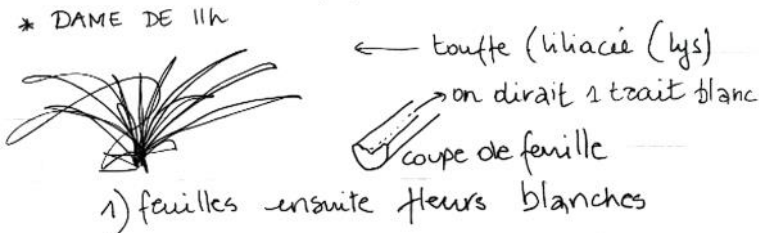 * DAME DE 11h
← touffe (liliacée (lys)
on dirait 1 trait blanc
coupe de feuille
1) feuilles ensuite fleurs blanches